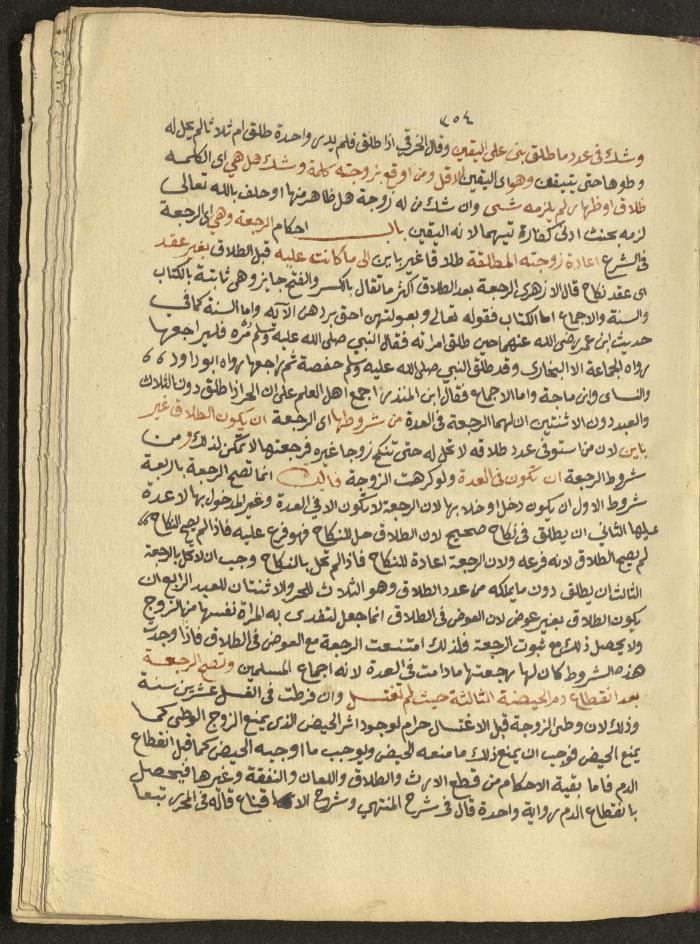 ٢٥٤
وشك في عدد ما طلق بنى على اليقين وقال الخرقي اذا طلق فلم يدر واحدة طلق ام ثلاثا لم يحل له
وطوها حتى يتيقن وهو اي اليقين الاقل ومن اوقع بزوجته كلمة وشك هل هي اي الكلمه
طلاق او ظهار لم يلزمه شي وان شك من له زوجة هل ظاهر منها او حلف بالله تعالى
لزمه بحنث ادنى كفارة تيهما لانه اليقين باب احكام الرجعة وهي اي الرجعة
في الشرع اعادة زوجته المطلقة طلاقا غير باين الى ما كانت عليه قبل الطلاق بغير عقد
اي عقد نكاح قال الازهري الرجعة بعد الطلاق اكثر ما تقال بالكسر والفتح جايز وهي ثابتة بالكتاب
والسنة والاجماع اما الكتاب فقوله تعالى وبعولتهن احق بردهن الآيه واما السنة كما في
حديث ابن عمر رضي الله عنهما حين طلق امراته فقال النبي صلى الله عليه وسلم مره فليراجعها
رواه الجماعة الا البخاري وقد طلق النبي صلى الله عليه وسلم حفصة ثم راجعها رواه ابو داود
والنساي وابن ماجة واما الاجماع فقال ابن المنذر اجمع اهل العلم على ان الحر اذا طلق دون الثلاث
والعبد دون الاثنتين ان لهما الرجعة في العدة من شروطها اي الرجعة ان يكون الطلاق غير
باين لان من استوفى عدد طلاقه لا تحل له حتى تنكح زوجا غيره فرجعتها لا تمكن لذلك ومن
شروط الرجعة ان تكون في العدة ولو كرهت الزوجة فايدة انما تصح الرجعة باربعة
شروط الاول ان يكون دخل او خلا بها لان الرجعة لا تكون الا في العدة وغير المدخول بها لا عدة
عليها الثاني ان يطلق في نكاح صحيح لان الطلاق حل للنكاح فهو فرع عليه فاذا لم يصح النكاح
لم يصح الطلاق لانه فرعه ولان الرجعة اعادة للنكاح فاذا لم تحل بالنكاح وجب ان لا تحل بالرجعة
الثالث ان يطلق دون ما يملكه من عدد الطلاق وهو الثلاث للحر والاثنتان للعبد الرابع ان
يكون الطلاق بغير عوض لان العوض في الطلاق انما جعل لتفتدي به المراة نفسها من الزوج
ولا يحصل ذلك مع ثبوت الرجعة فلذلك امتنعت الرجعة مع العوض في الطلاق فاذا وجدت
هذه الشروط كان لها رجعتها ما دامت في العدة لانه اجماع المسلمين وتصح الرجعة
بعد انقطاع دم الحيضة الثالثة حيث لم تغتسل وان فرطت في الغسل عشرين سنة
وذلك لان وطئ الزوجة قبل الاغتسال حرام لوجود اثر الحيض الذي يمنع الزوج الوطئ كما
يمنع الحيض فوجب ان يمنع ذلك ما منعه الحيض ويوجب ما اوجبه الحيض كما قبل انقطاع
الدم فاما بقية الاحكام من قطع الارث والطلاق واللعان والنفقة وغيرها فيحصل
بانقطاع الدم رواية واحدة قال في شرح المنتهي وشرح الاقناع قاله في المحرر تبعا